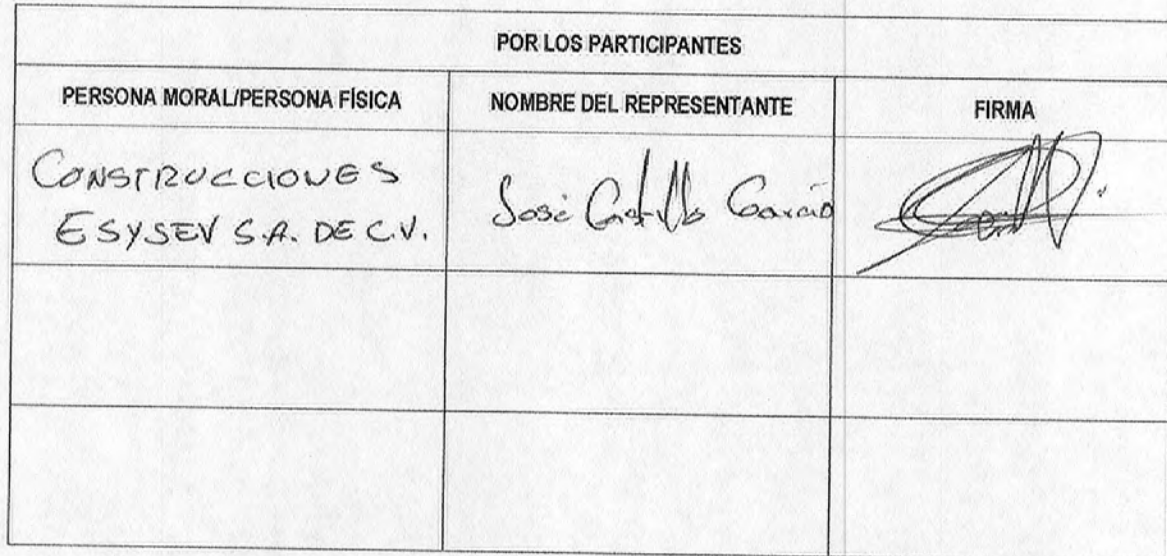 POR LOS PARTICIPANTES
PERSONA MORAL/PERSONA FÍSICA NOMBRE DEL REPRESENTANTE FIRMA
CONSTRUCCIONES
ESYSEV S.A. DE C.V. José Castillo García